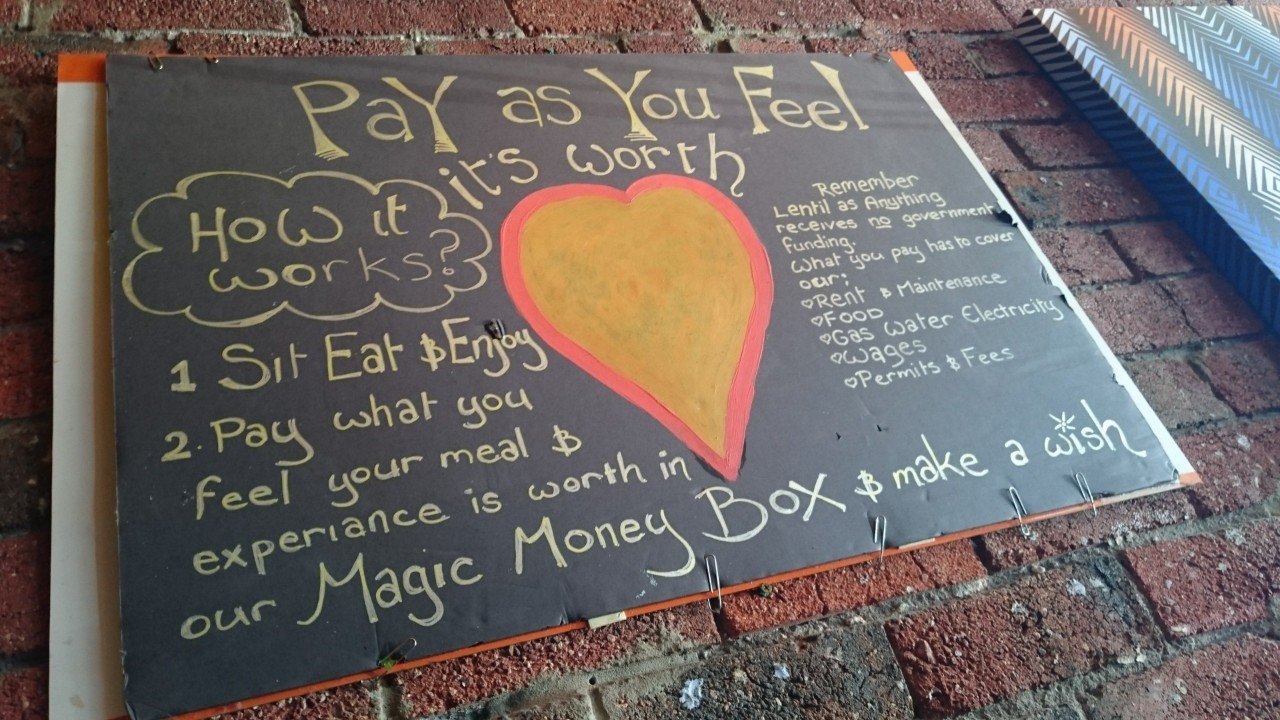 Pay as You Feel
it's worth
How it
works?
1 Sit Eat & Enjoy
2. Pay what you
feel your meal &
experiance is worth in
our Magic Money Box & make a wish
Remember
Lentil as Anything
receives no government
funding.
What you pay has to cover
our;
Rent & Maintenance
Food
Gas Water Electricity
Wages
Permits & Fees